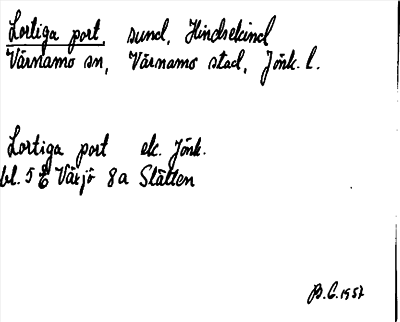 Lortiga port, sund, Hindsekind
Värnamo sn, Värnamo stad, Jönk. l.
Lortiga port ek. Jönk.
bl. 5 E Växjö 8a Slätten
B. G. 1957